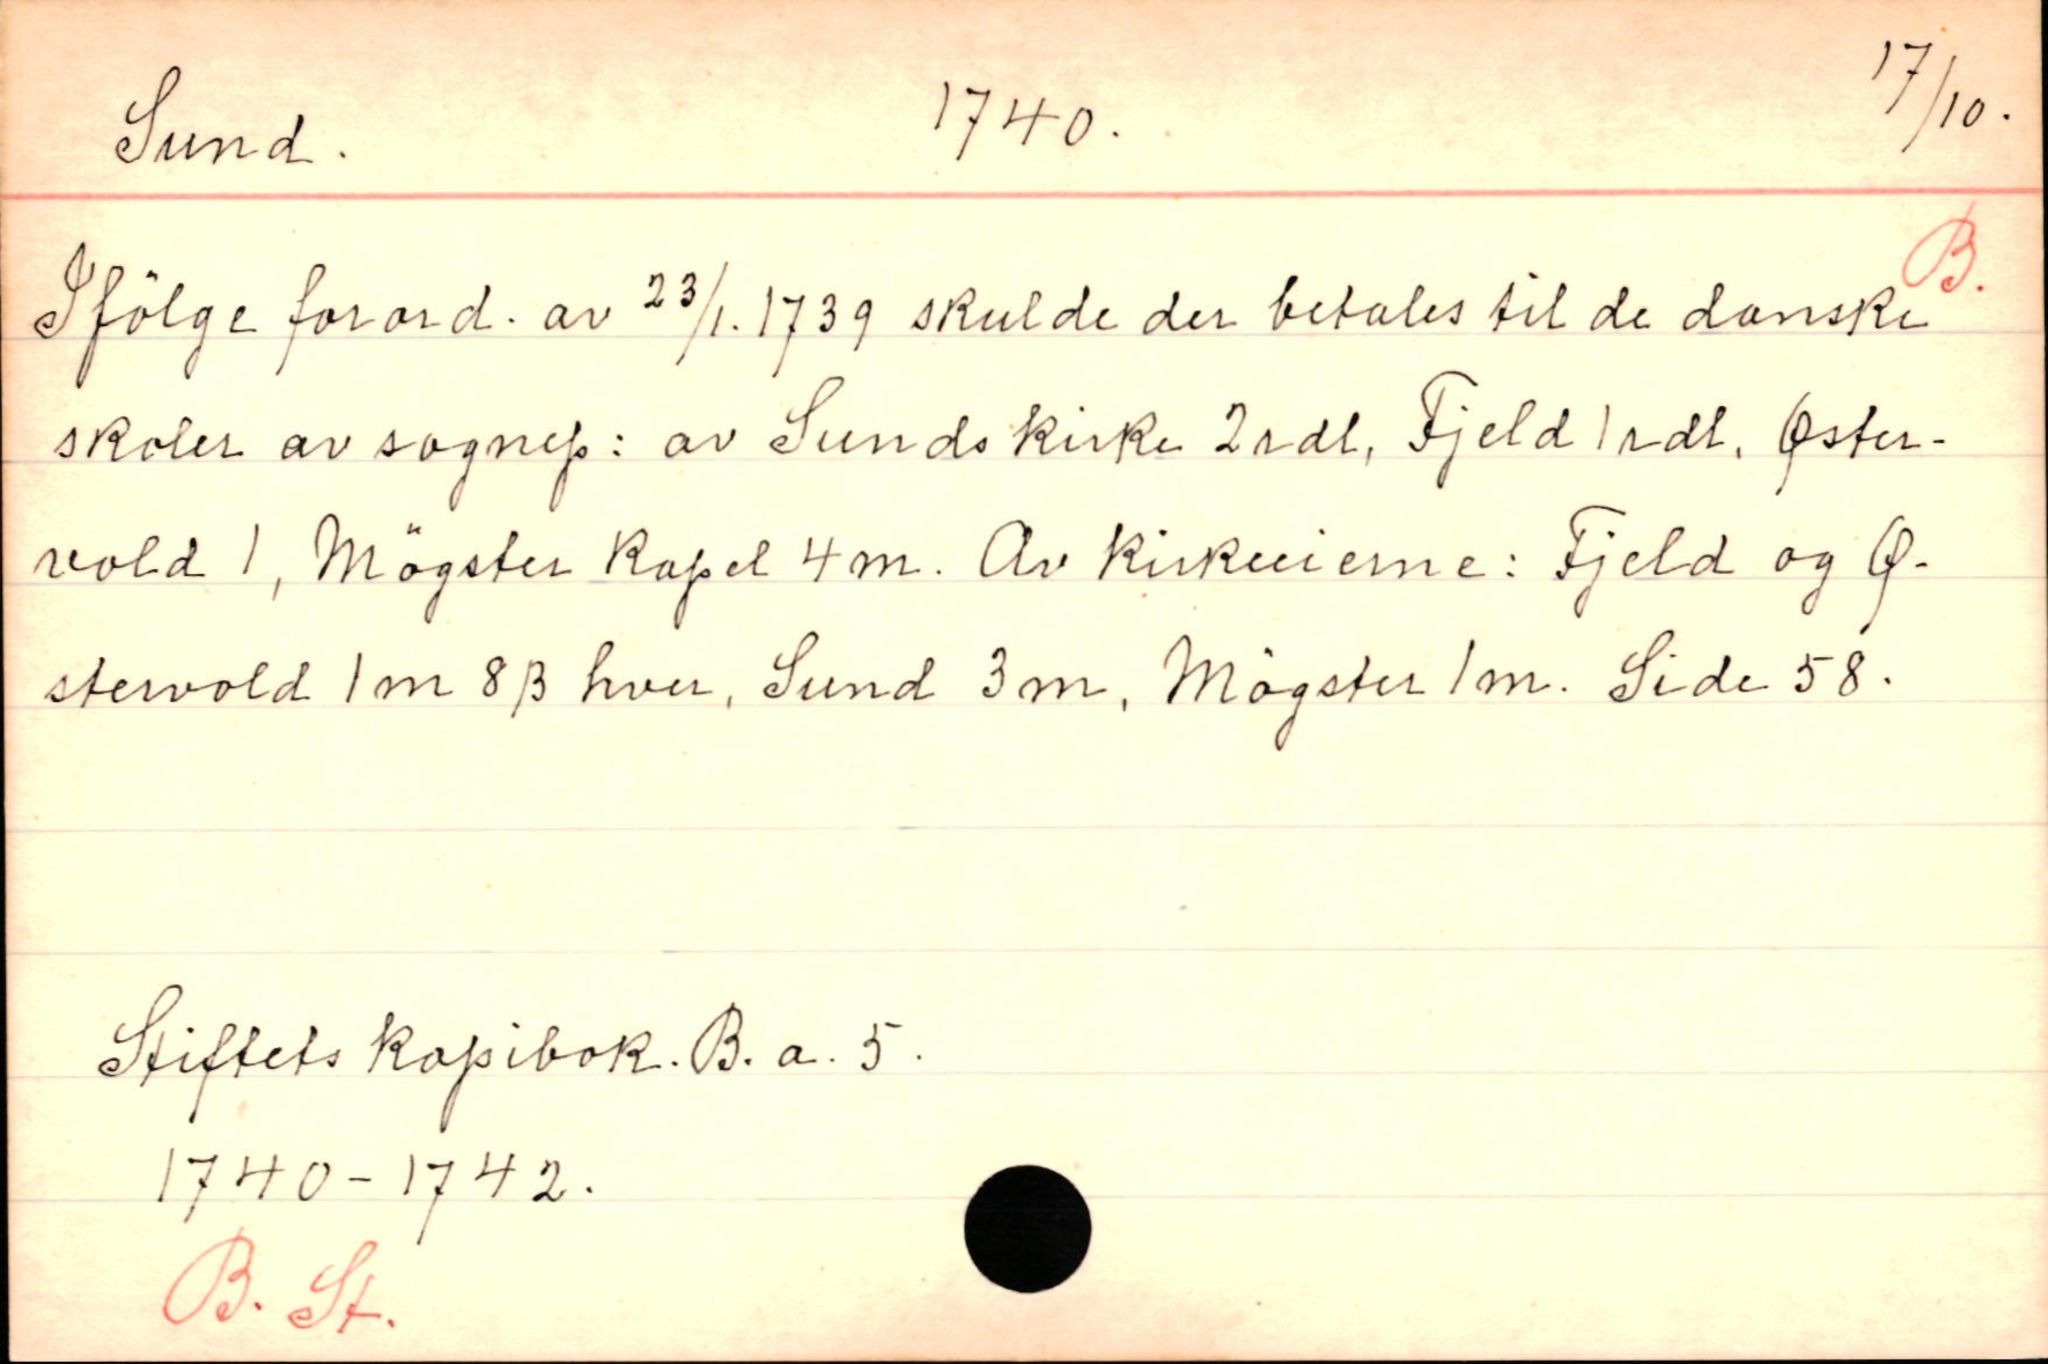 Sund. 1740. 17/10.
B.
Ifölge forord. av 23/1. 1739 skulde der betales til de danske
skoler av sognep: av Sunds kirke 2 rdl, Fjeld 1 rdl, Øster-
vold 1, Mögster kapel 4 m. Av kirkeeierne: Fjeld og Ø-
stervold 1 m 8 β hver, Sund 3 m, Mögster 1 m. Side 58.
Stiftets kopibok. B. a. 5.
1740-1742.
B. St.